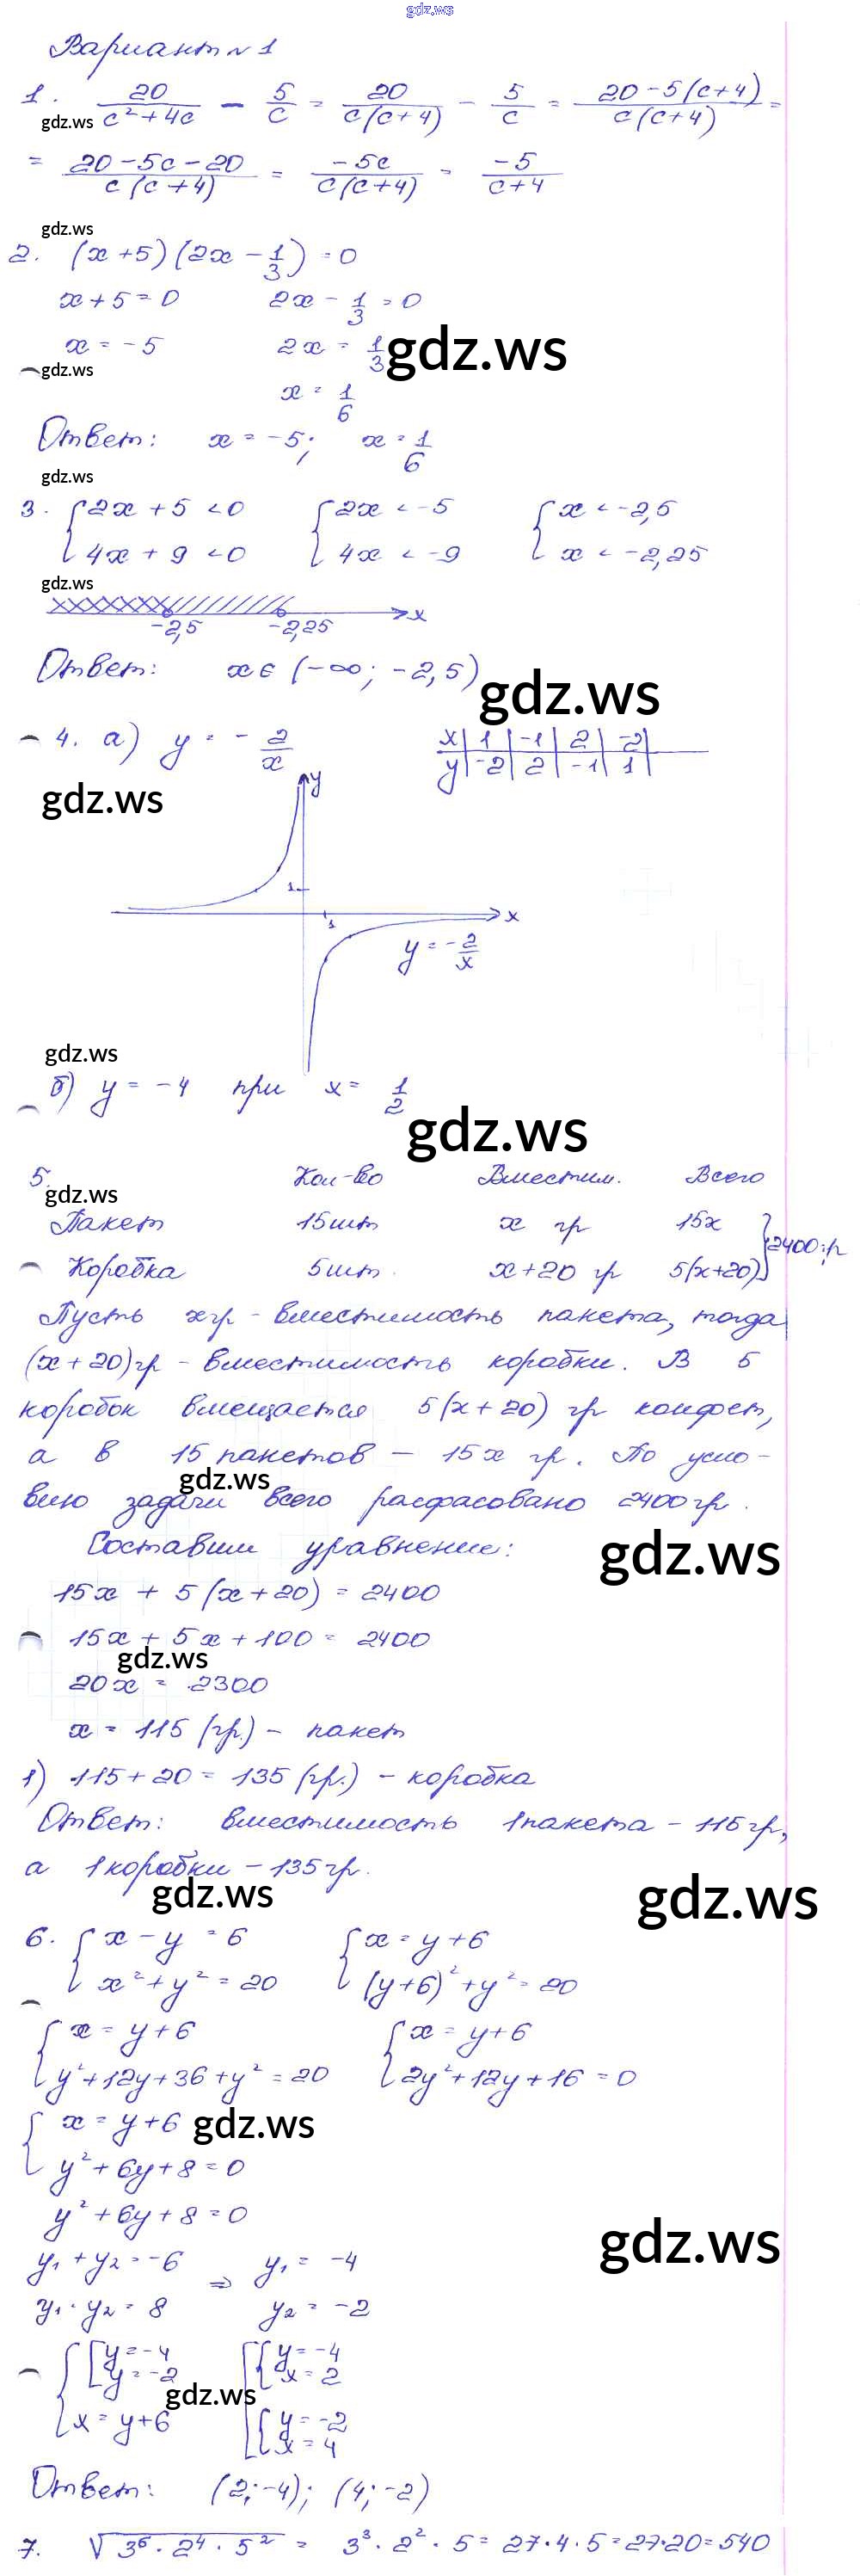 gdz.ws
Вариант № 1
1. 20/(c²+4c) - 5/c = 20/(c(c+4)) - 5/c = (20-5(c+4))/(c(c+4)) =
gdz.ws
= (20-5c-20)/(c(c+4)) = -5c/(c(c+4)) = -5/(c+4)
gdz.ws
2. (x+5)(2x - 1/3) = 0
x+5=0 2x - 1/3 = 0
x = -5 2x = 1/3
gdz.ws
gdz.ws
x = 1/6
Ответ: x = -5; x = 1/6
gdz.ws
3. {2x + 5 < 0 {2x < -5 {x < -2,5
{4x + 9 < 0 {4x < -9 {x < -2,25
gdz.ws
-2,5 -2,25 x
Ответ: x ∈ (-∞; -2,5)
gdz.ws
4. а) y = - 2/x
x | 1 | -1 | 2 | -2 |
y | -2 | 2 | -1 | 1 |
gdz.ws
y
1
x
1
y = - 2/x
gdz.ws
б) y = -4 при x = 1/2
gdz.ws
5. Кол-во Вместим. Всего
gdz.ws
Пакет 15шт x гр 15x
Коробка 5шт. x+20 гр 5(x+20) } 2400 гр
Пусть x гр - вместимость пакета, тогда
(x+20) гр - вместимость коробки. В 5
коробок вмещается 5(x+20) гр конфет,
а в 15 пакетов - 15x гр. По усло-
gdz.ws
вию задачи всего расфасовано 2400 гр.
Составим уравнение:
gdz.ws
15x + 5(x+20) = 2400
15x + 5x + 100 = 2400
gdz.ws
20x = 2300
x = 115 (гр.) - пакет
1) 115+20 = 135 (гр.) - коробка
Ответ: вместимость 1 пакета - 115 гр,
а 1 коробки - 135 гр.
gdz.ws
gdz.ws
6. {x - y = 6 {x = y+6
{x² + y² = 20 {(y+6)² + y² = 20
{x = y+6 {x = y+6
{y²+12y+36+y² = 20 {2y²+12y+16 = 0
{x = y+6
gdz.ws
{y²+6y+8=0
y²+6y+8=0
gdz.ws
y₁ + y₂ = -6 ⇒ y₁ = -4
y₁ · y₂ = 8 y₂ = -2
{[y=-4 [{y=-4
[y=-2 {x=2
gdz.ws
{x=y+6 [{y=-2
{x=4
Ответ: (2;-4); (4;-2)
7. √(3⁶·2⁴·5²) = 3³·2²·5 = 27·4·5 = 27·20 = 540